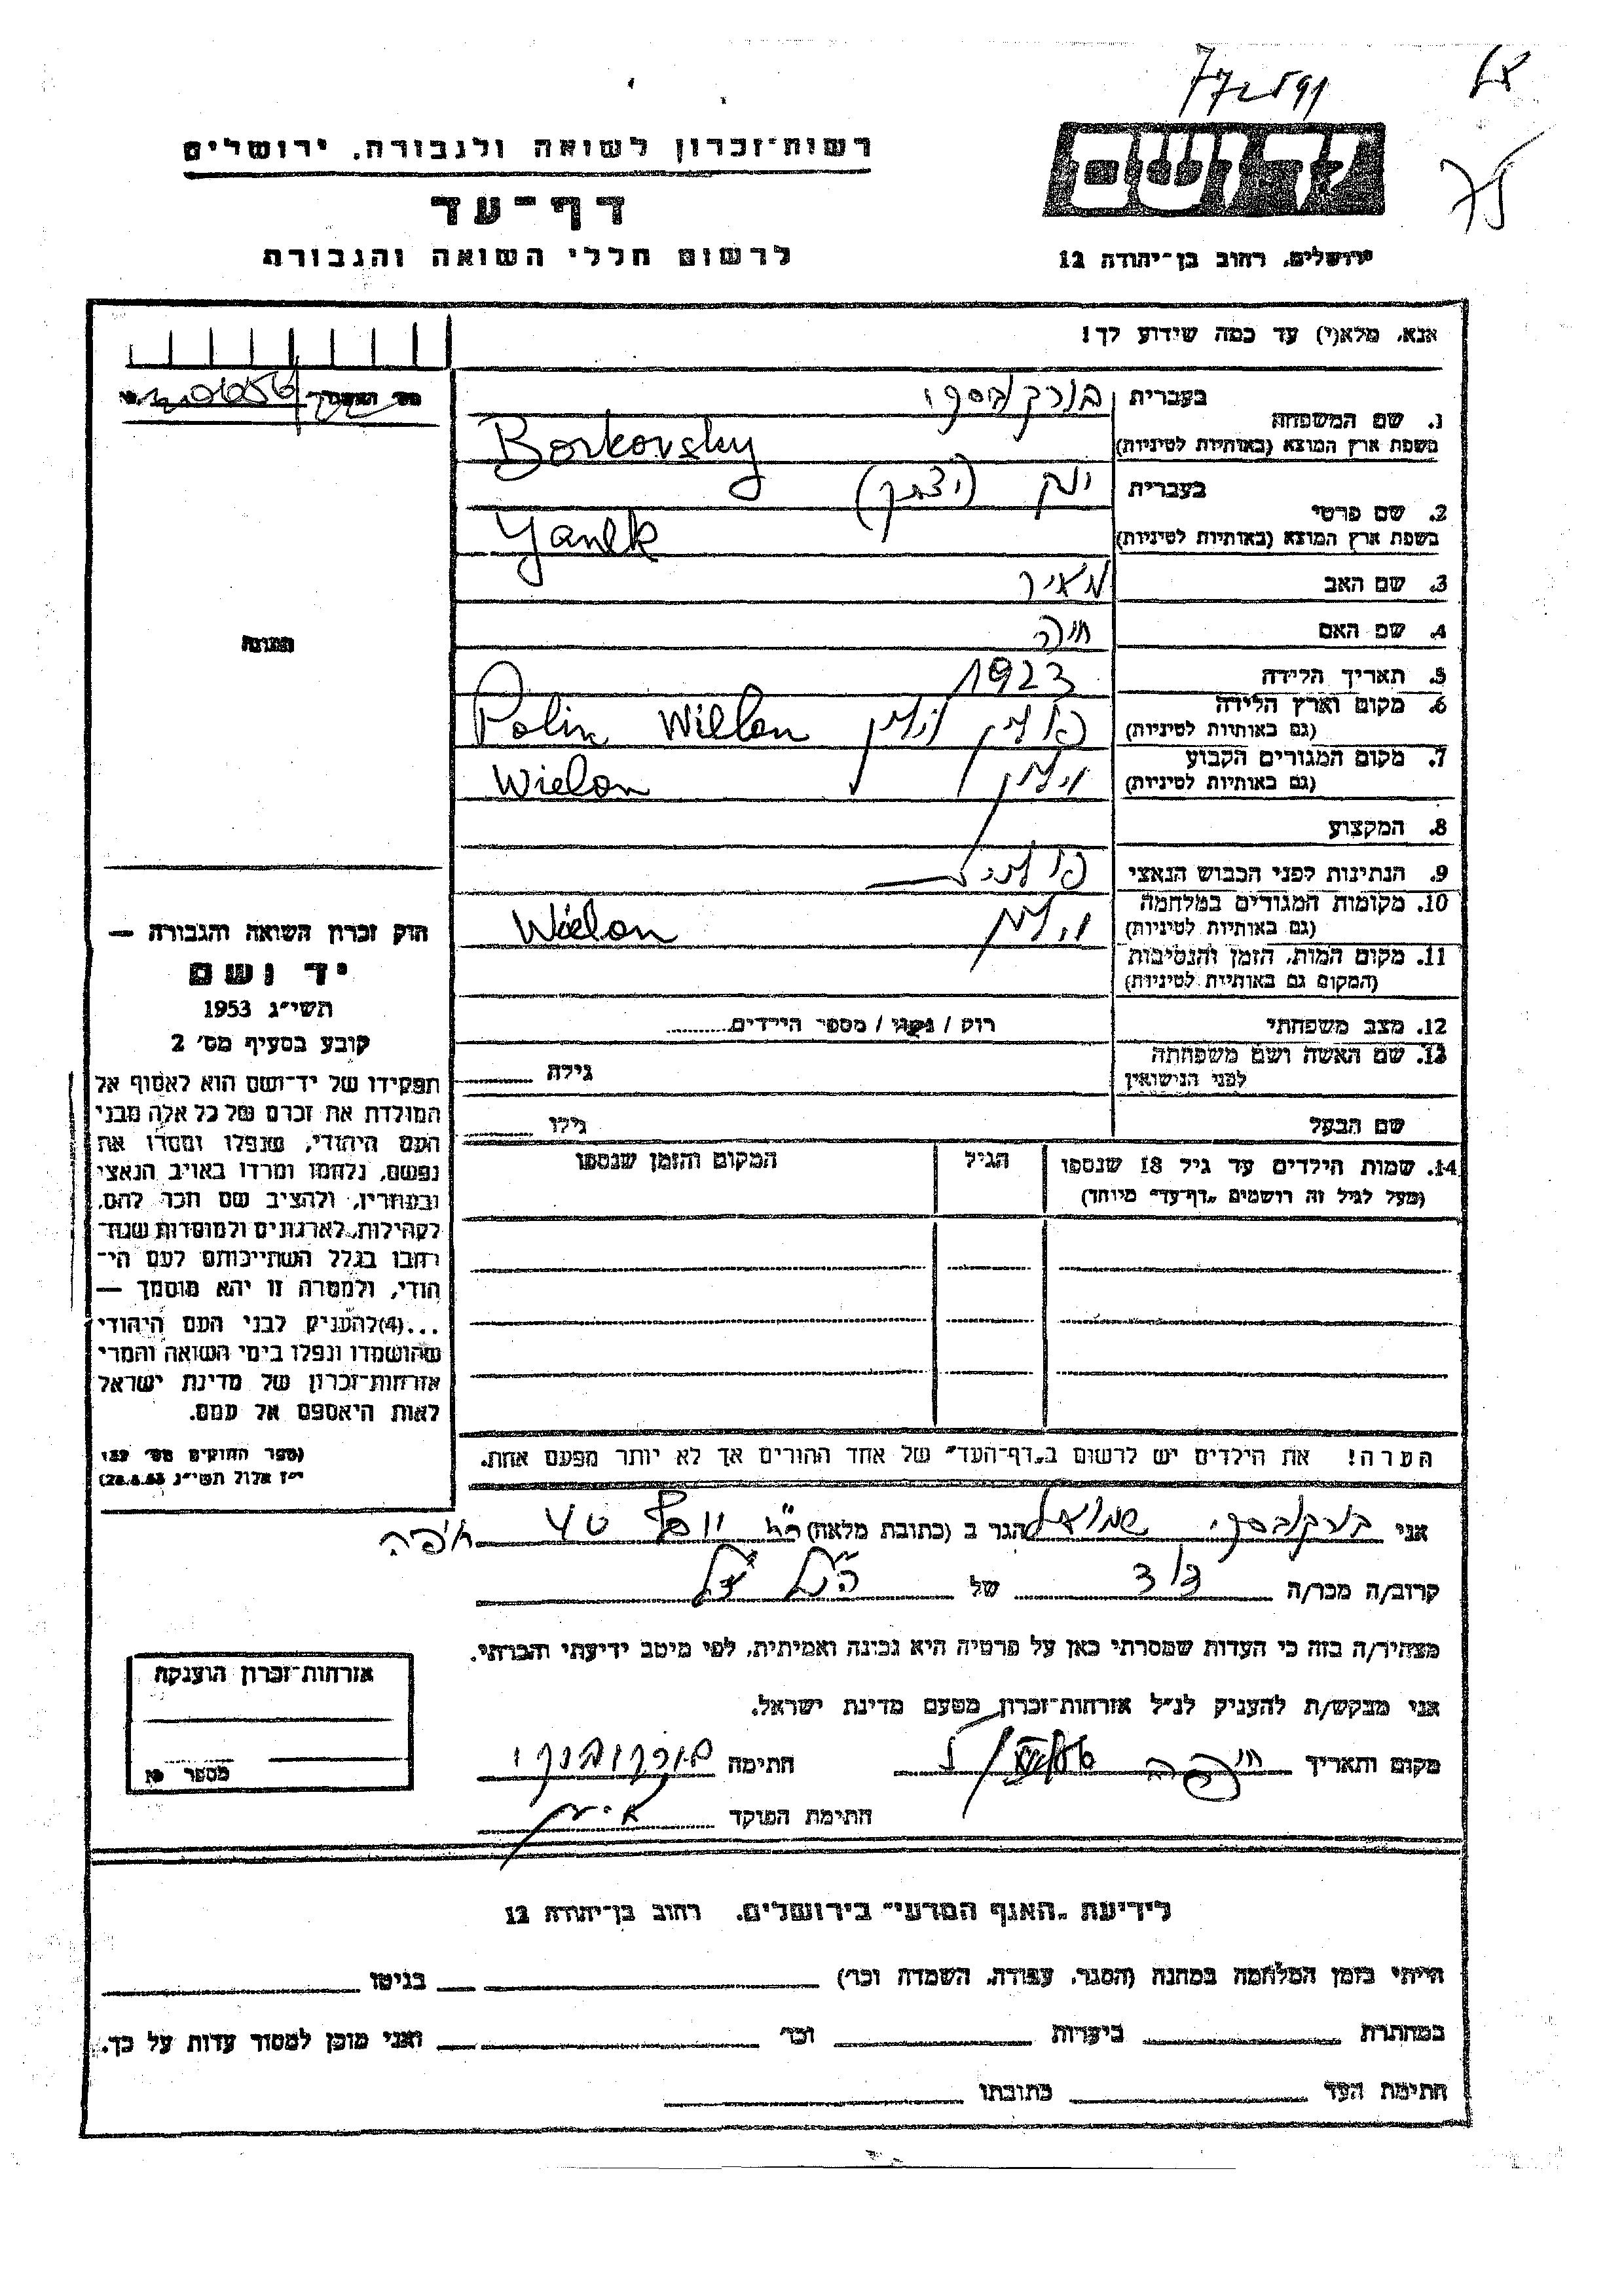 רשות־זכרון לשואה ולגבורה, ירושלים
דף־עד
לרשום חללי השואה והגבורה
יד ושם
ירושלים, רחוב בן־יהודה 12
אנא, מלא(י) עד כמה שידוע לך!
1. שם המשפחה
בעברית בורקובסקי
בשפת ארץ המוצא (באותיות לטיניות) Borkovsky
2. שם פרטי
בעברית ינק (יצחק)
בשפת ארץ המוצא (באותיות לטיניות) Yanek
3. שם האב מאיר
4. שם האם חיה
5. תאריך הלידה 1923
6. מקום וארץ הלידה
(גם באותיות לטיניות) פולין וילון Wielon Polin
7. מקום המגורים הקבוע
(גם באותיות לטיניות) וילון Wielon
8. המקצוע
9. הנתינות לפני הכבוש הנאצי פולנית
10. מקומות המגורים במלחמה
(גם באותיות לטיניות) וילון Wielon
11. מקום המות, הזמן והנסיבות
(המקום גם באותיות לטיניות)
12. מצב משפחתי רוק / נשוי / מספר הילדים
13. שם האשה ושם משפחתה
לפני הנישואין גילה
שם הבעל גילו
14. שמות הילדים עד גיל 18 שנספו הגיל המקום והזמן שנספו
(מעל לגיל זה רושמים „דף־עד” מיוחד)
הערה! את הילדים יש לרשום ב„דף־העד” של אחד ההורים אך לא יותר מפעם אחת.
תמונה
חוק זכרון השואה והגבורה —
יד ושם
תשי״ג 1953
קובע בסעיף מס׳ 2
תפקידו של יד־ושם הוא לאסוף אל
המולדת את זכרם של כל אלה מבני
העם היהודי, שנפלו ומסרו את
נפשם, נלחמו ומרדו באויב הנאצי
ובעוזריו, ולהציב שם וזכר להם,
לקהילות, לארגונים ולמוסדות שנח־
רבו בגלל השתייכותם לעם הי־
הודי, ולמטרה זו יהא מוסמך —
...(4)להעניק לבני העם היהודי
שהושמדו ונפלו בימי השואה והמרי
אזרחות־זכרון של מדינת ישראל
לאות היאספם אל עמם.
(ספר החוקים מס׳ 132
י״ז אלול תשי״ג 28.8.53)
אני בורקובסקי שמואל הגר ב (כתובת מלאה) יוסף חיפה
קרוב/ה מכר/ה דוד של הנ״ל
מצהיר/ה בזה כי העדות שמסרתי כאן על פרטיה היא נכונה ואמיתית, לפי מיטב ידיעתי והכרתי.
אני מבקש/ת להעניק לנ״ל אזרחות־זכרון מטעם מדינת ישראל.
מקום ותאריך חיפה חתימה בורקובסקי
חתימת הפוקד
אזרחות־זכרון הוענקה
מספר
לידיעת „האגף המדעי” בירושלים, רחוב בן־יהודה 12
הייתי בזמן המלחמה במחנה (הסגר, עבודה, השמדה וכר׳) בגיטו
במחתרת ביערות וכר׳ ואני מוכן למסור עדות על כך.
חתימת העד כתובתו